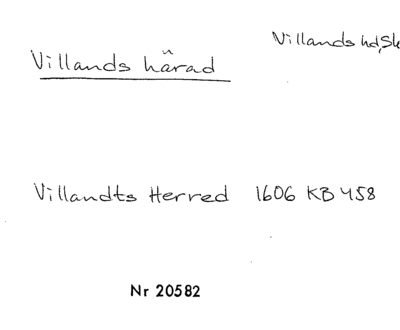 Villands hd, Sk
Villands härad
Villandts Herred 1606 KB 458
Nr 20582